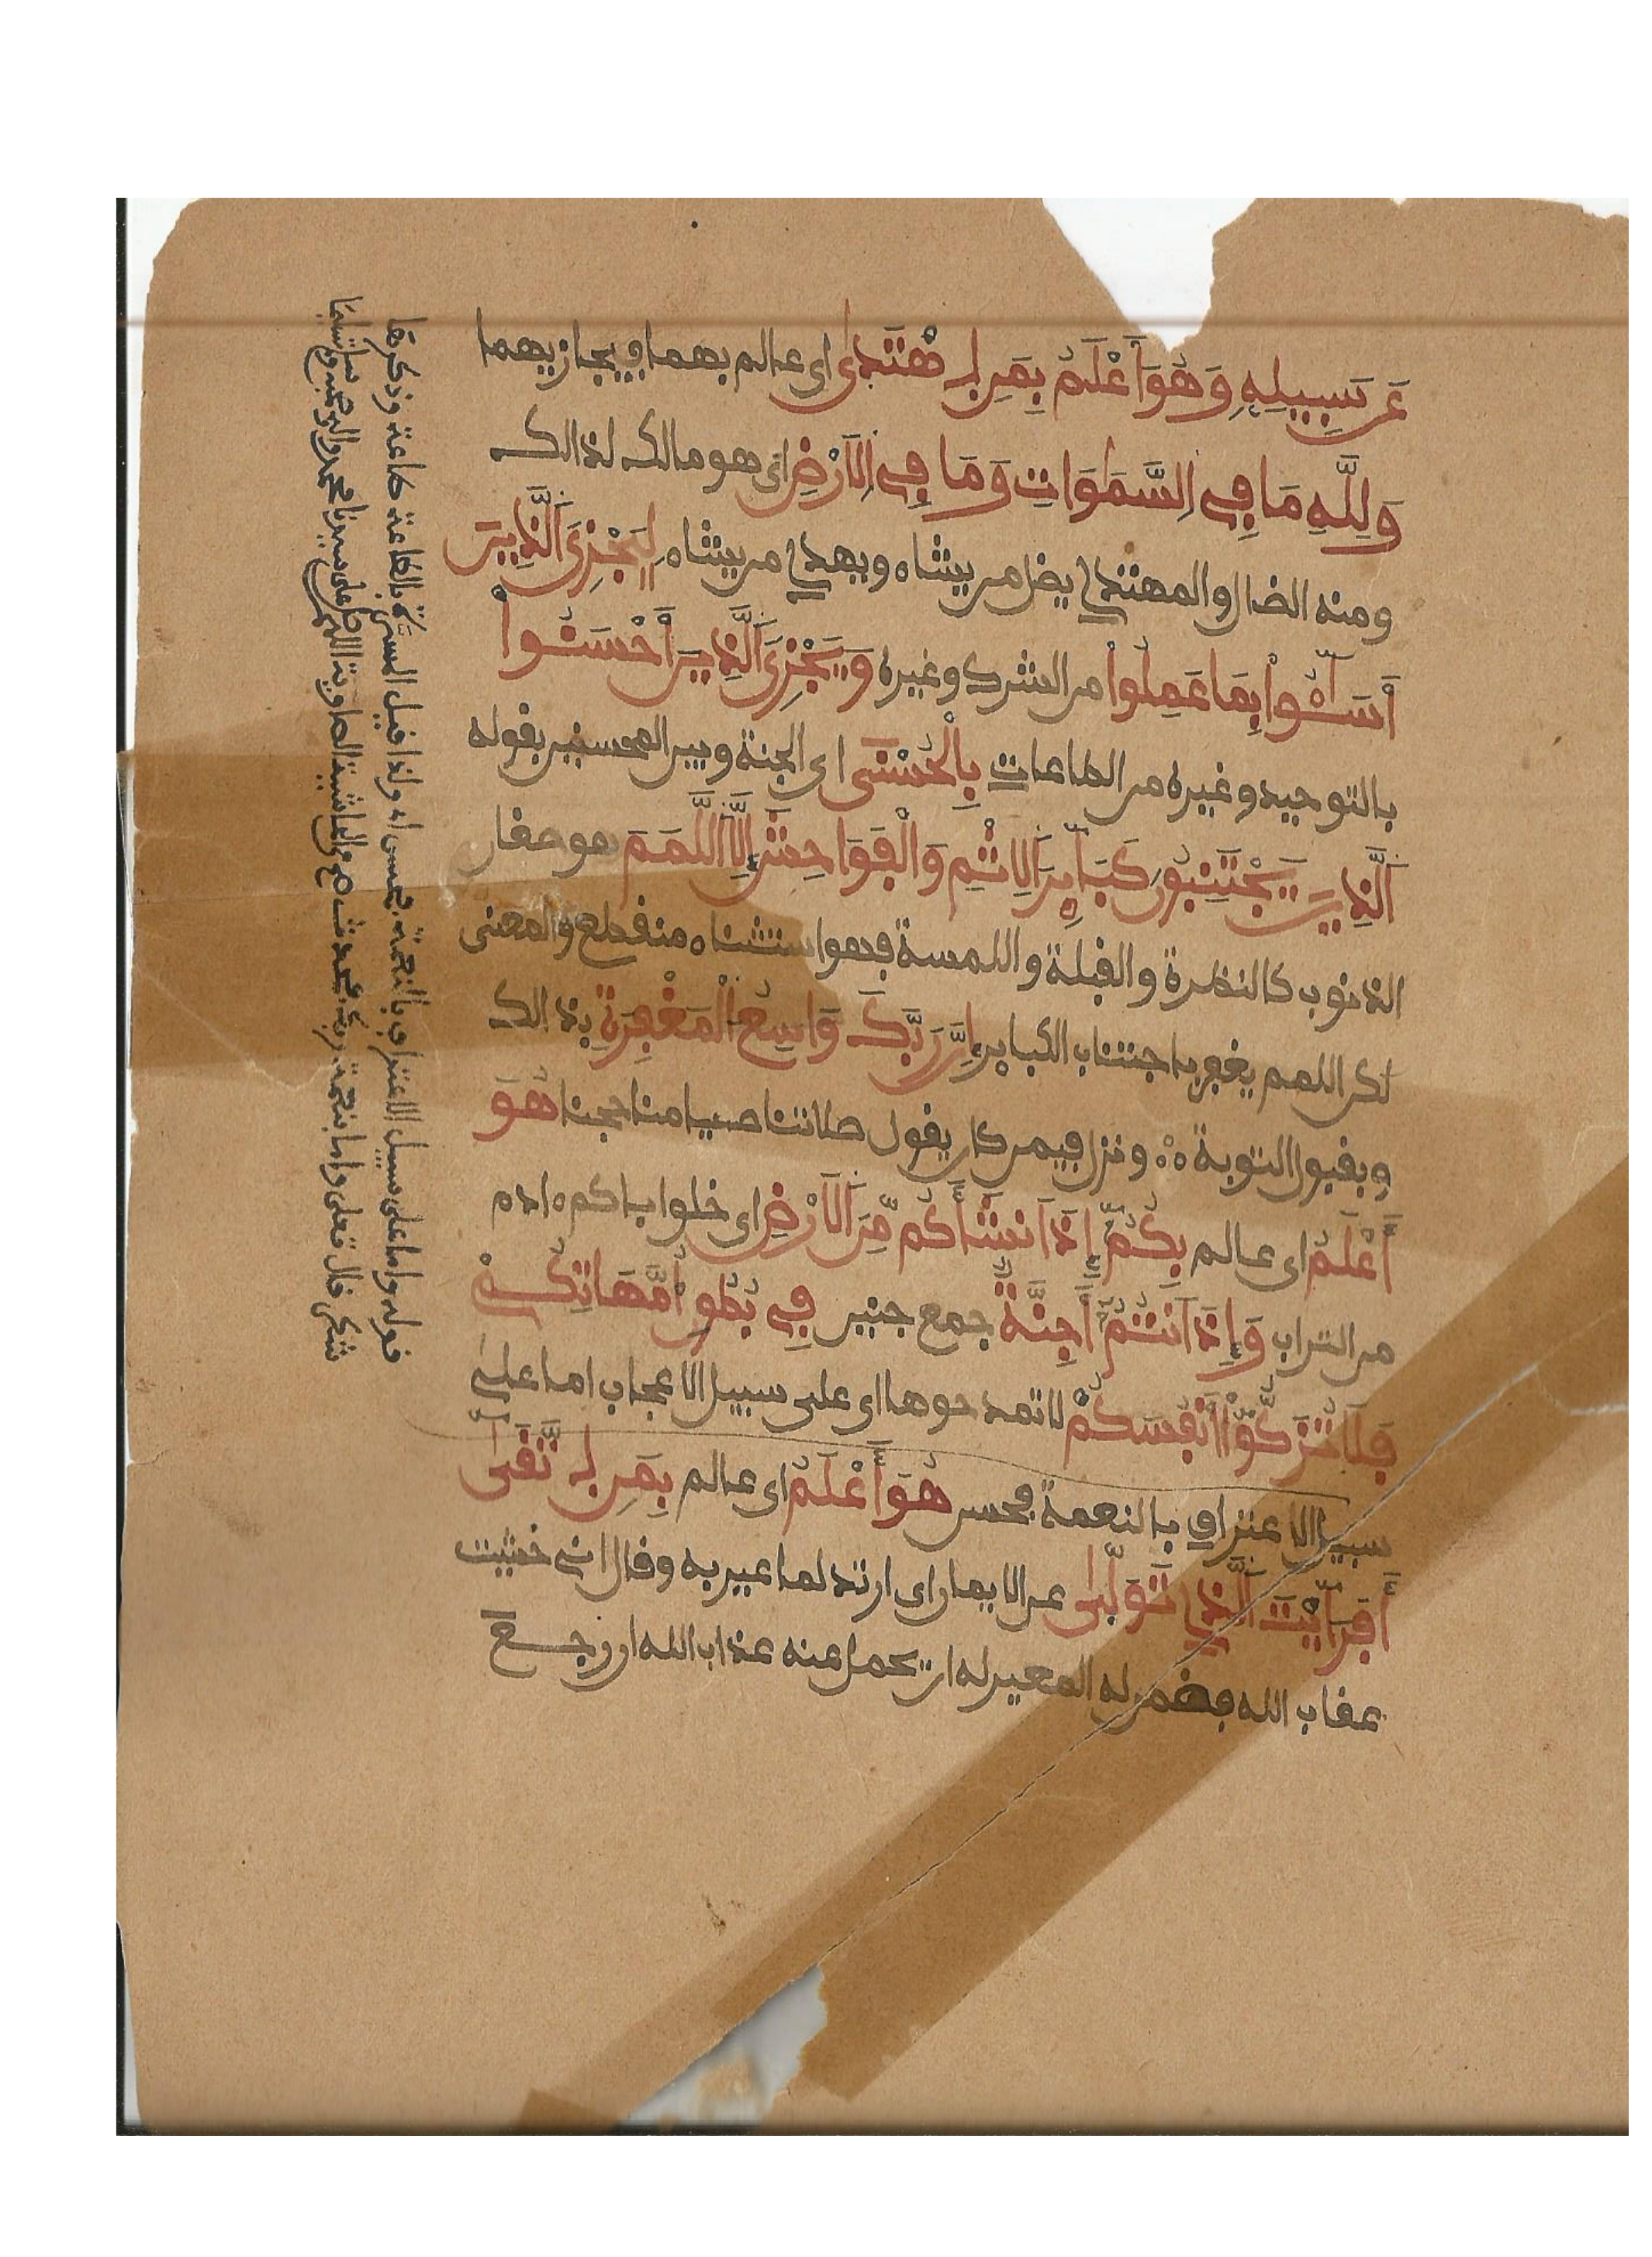 عَن سَبِيلِهِ وَهُوَ أَعْلَمُ بِمَنِ اهْتَدَى اى عالم بهما فيجازيهما
وَلِلَّهِ مَا فِي السَّمَوَاتِ وَمَا فِي الاَرْضِ اى هو مالك لذالك
ومنه الضال والمهتدي يضل من يشاء ويهدي من يشاء لِيَجْزِيَ الَّذِينَ
أَسَـُٔوا بِمَا عَمِلُوا من الشرك وغيره وَيَجْزِيَ الَّذِينَ أَحْسَنُوا
بالتوحيد وغيره من الطاعات بِالْحُسْنَى اى الجنة وبين المحسنين بقوله
الَّذِينَ يَجْتَنِبُونَ كَبَٰٓئِرَ الاِثْمِ وَالْفَوَاحِشَ إِلَّا اللَّمَمَ هو صغار
الذنوب كالنظرة والقبلة واللمسة فهو استثناء منقطع والمعنى
لكن اللمم يغفر باجتناب الكباير إِنَّ رَبَّكَ وَاسِعُ الْمَغْفِرَةِ بذالك
وبقبول التوبة ونزل فيمن كان يقول صلاتنا صيامنا حجنا هُوَ
أَعْلَمُ اى عالم بِكُمْ إِذَ اَنشَأَكُم مِّنَ الاَرْضِ اى خلق اباكم ءادم
من التراب وَإِذَ اَنتُمْ أَجِنَّةٌ جمع جنين فِي بُطُونِ أُمَّهَاتِكُمْ
فَلَا تُزَكُّوا أَنفُسَكُمْ لا تمدحوها اى على سبيل الاعجاب اما على
سبيل الاعتراف بالنعمة فحسن هُوَ أَعْلَمُ اى عالم بِمَنِ اتَّقَى
أَفَرَأَيْتَ الَّذِي تَوَلَّى عن الايمان اى ارتد لما عير به وقال انى خشيت
عقاب الله فضمن له المعير له ان يحمل عنه عذاب الله ان رجع
قوله واما على سبيل الاعتراف بالنعمة فحسن اه ولذا قيل المسرة بالطاعة طاعة وذكرها
شكر قال تعلى واما بنعمة ربك فحدث صح من الحاشية الصاوية اللهم صل على سيدنا محمد واله وصحبه وسلم تسليما